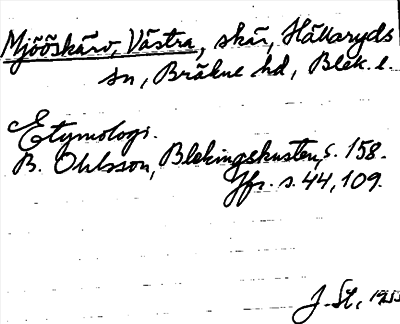 Mjööskärv, Västra, skär, Hällaryds
sn, Bräkne hd, Blek. l.
Etymologi.
B. Ohlsson, Blekingskusten, s. 158.
Jfr. s. 44, 109.
J. St,